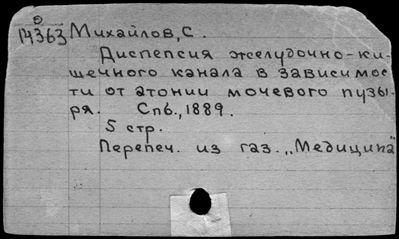 5
14363 Михайлов, С.
Диспепсия желудочно-ки-
шечного канала в зависимос-
ти от атонии мочевого пузы-
ря. Спб., 1889.
5 стр.
Перепеч. из газ. „Медицина"